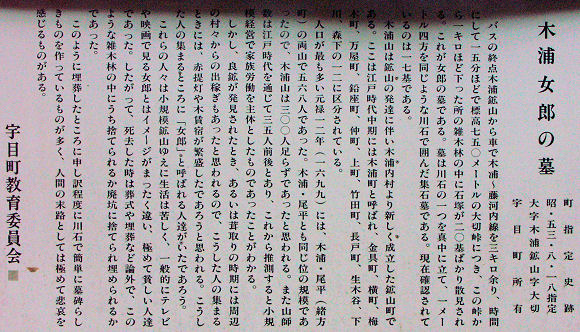 木浦女郎の墓
町指定史跡
昭・五三・八・一八指定
大字木浦鉱山字大切
宇目町所有
バスの終点木浦鉱山から車で木浦〜藤河内線を三キロ余り、時間
にして一五分ほどで標高七五〇メートルの大切峠につき、この峠か
ら一キロほど下った所の雑木林の中に石塚が二〇基ばかり散見され
る。これが女郎の墓である。墓は川石の一つを真中に立て、一メー
トル四方を同じような川石で囲んだ集石墓である。現在確認されて
いるのは一七基である。
木浦山は鉱山の発達に伴い木浦内村より新しく成立した鉱山町で
ある。ここは江戸時代中期には木浦町と呼ばれ、金具町、横町、梅
木町、万屋町、鉛座町、仲町、上町、竹田町、長戸町、生木谷、下
川、森下の一二に区分されている。
人口が最も多い元禄一二年(一六九九)には、木浦・尾平(緒方
町)の両山で五六八人であった。木浦・尾平とも同じ位の規模であ
ったので、木浦山は三〇〇人足らずであったと思われる。また山師
数は江戸時代を通じて三五人前後とあり、これから推測すると小規
模経営で家族労働を主体としたものであったことがわかる。
しかし、良鉱が発見されたとき、あるいは茸取りの時期には周辺
の村々からの出稼ぎもあったと思われるので、こうした人の集まる
ときには、赤提灯や木賃宿が繁盛したであろうと思われる。こうし
た人の集まるところに「女郎」と呼ばれる人達がいたであろう。
これらの人々は小規模鉱山ゆえに生活は苦しく、一般的にテレビ
や映画で見る女郎とはイメージがまったく違い、極めて貧しい人達
であった。したがって、死去した時は葬式や埋葬など論外で、この
ような雑木林の中にうち捨てられるか廃坑に捨てられ埋められるか
であった。
このように埋葬したところに申し訳程度に川石で簡単に墓碑らし
きものを作っているものが多く、人間の末路としては極めて悲哀を
感じるものがある。
宇目町教育委員会